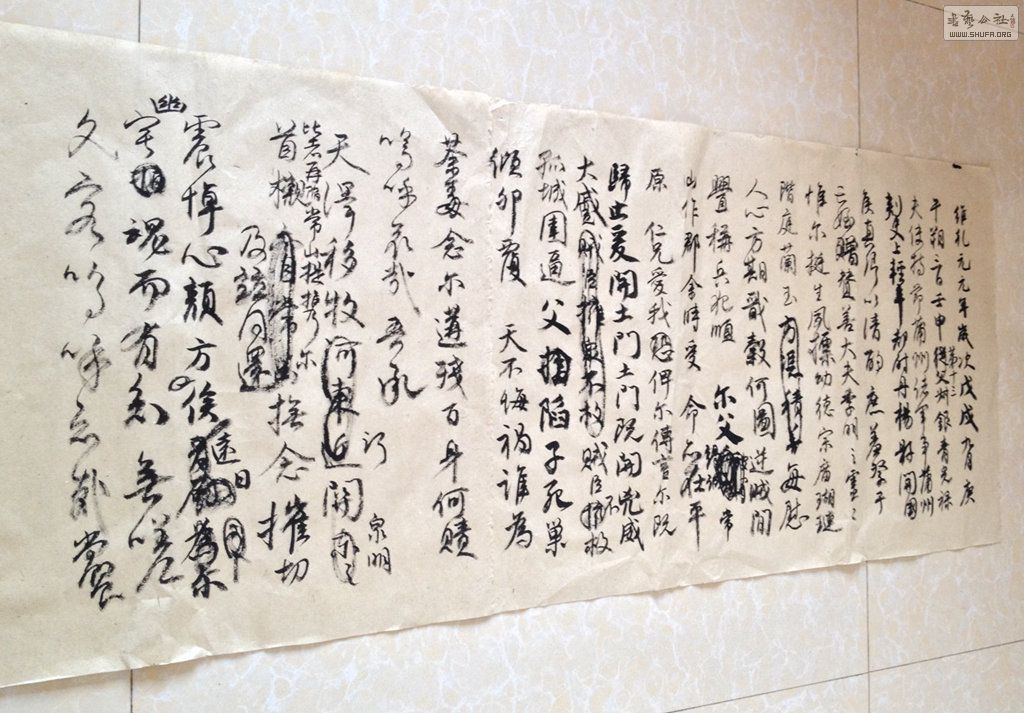 維乾元元年歲次戊戌九月庚
午朔三日壬申第十三從父銀青光祿
夫使持節蒲州諸軍事蒲州
刺史上輕車都尉丹楊縣開國
侯真卿以清酌庶羞祭于
亡姪贈贊善大夫季明之靈
惟爾挺生夙標幼德宗廟瑚璉
階庭蘭玉每慰
人心方期戩穀何圖逆賊閒
釁稱兵犯順爾父竭誠常
山作郡余時受命亦在平
原仁兄愛我恐俾爾傳言爾既
歸止爰開土門土門既開兇威
大蹙賊臣擁眾不救賊臣擁不救
孤城圍逼父陷子死巢
傾卵覆天不悔禍誰為
荼毒念爾遘殘百身何贖
嗚呼哀哉吾承
天澤移牧河東近泉明
比者再陷常山攜爾
首櫬及茲同還撫念摧切
震悼心顏方俟遠日
幽宅魂而有知無嗟
久客嗚呼哀哉尚饗
書法公社
WWW.SHUFA.ORG